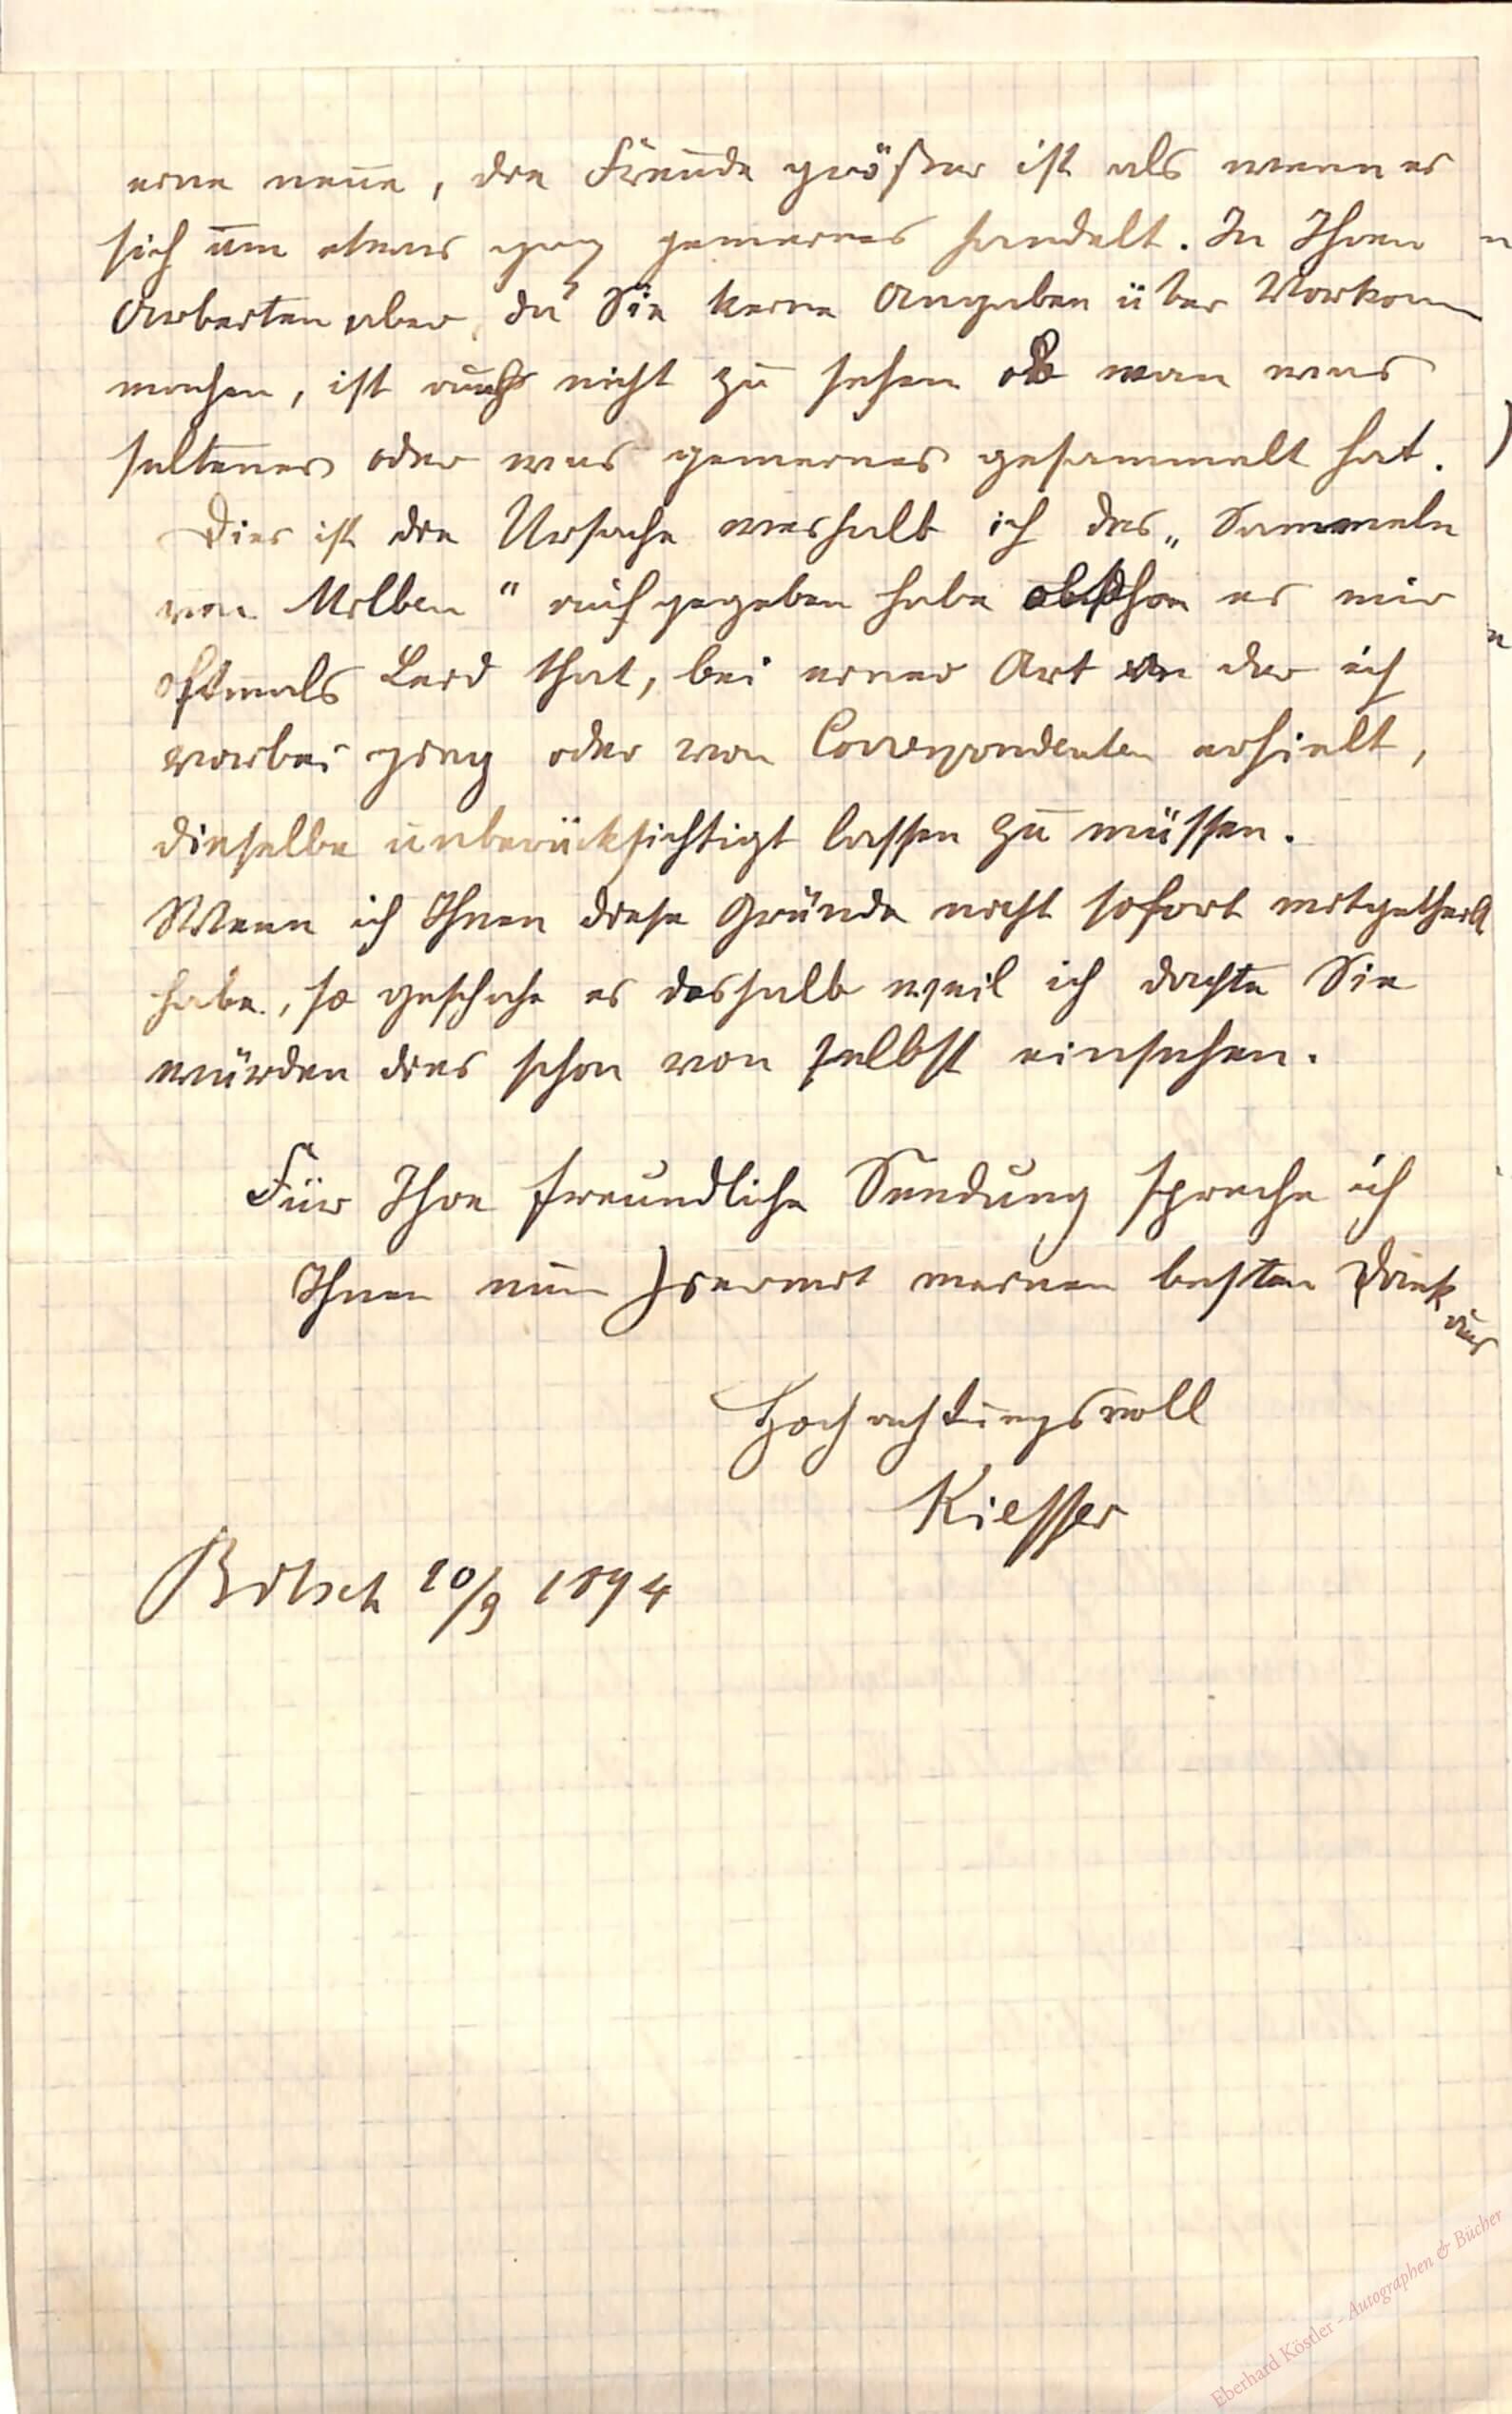 eine neue, die Freude größer ist als wenn es
sich um etwas ganz gemeines handelt. In Ihren
Arbeiten aber, da Sie keine Angaben über Vorkom
machen, ist auch nicht zu sehen ob man was
seltenes oder was gemeines gesammelt hat.
Dies ist die Ursache weshalb ich das „Sammeln
von Milben“ aufgegeben habe obschon es mir
oftmals Leid that, bei einer Art an der ich
vorbei ging oder von Correspondenten erhielt,
dieselbe unberücksichtigt lassen zu müssen.
Wenn ich Ihnen diese Gründe nicht sofort mitgetheilt
habe, so geschahe es deshalb weil ich dachte Sie
würden dies schon von selbst einsehen.
Für Ihre freundliche Sendung spreche ich
Ihnen nun hiermit meinen besten Dank
aus
Hochachtungsvoll
Kieffer
Bitsch 20/9 1894
Eberhard Köstler – Autographen & Bücher